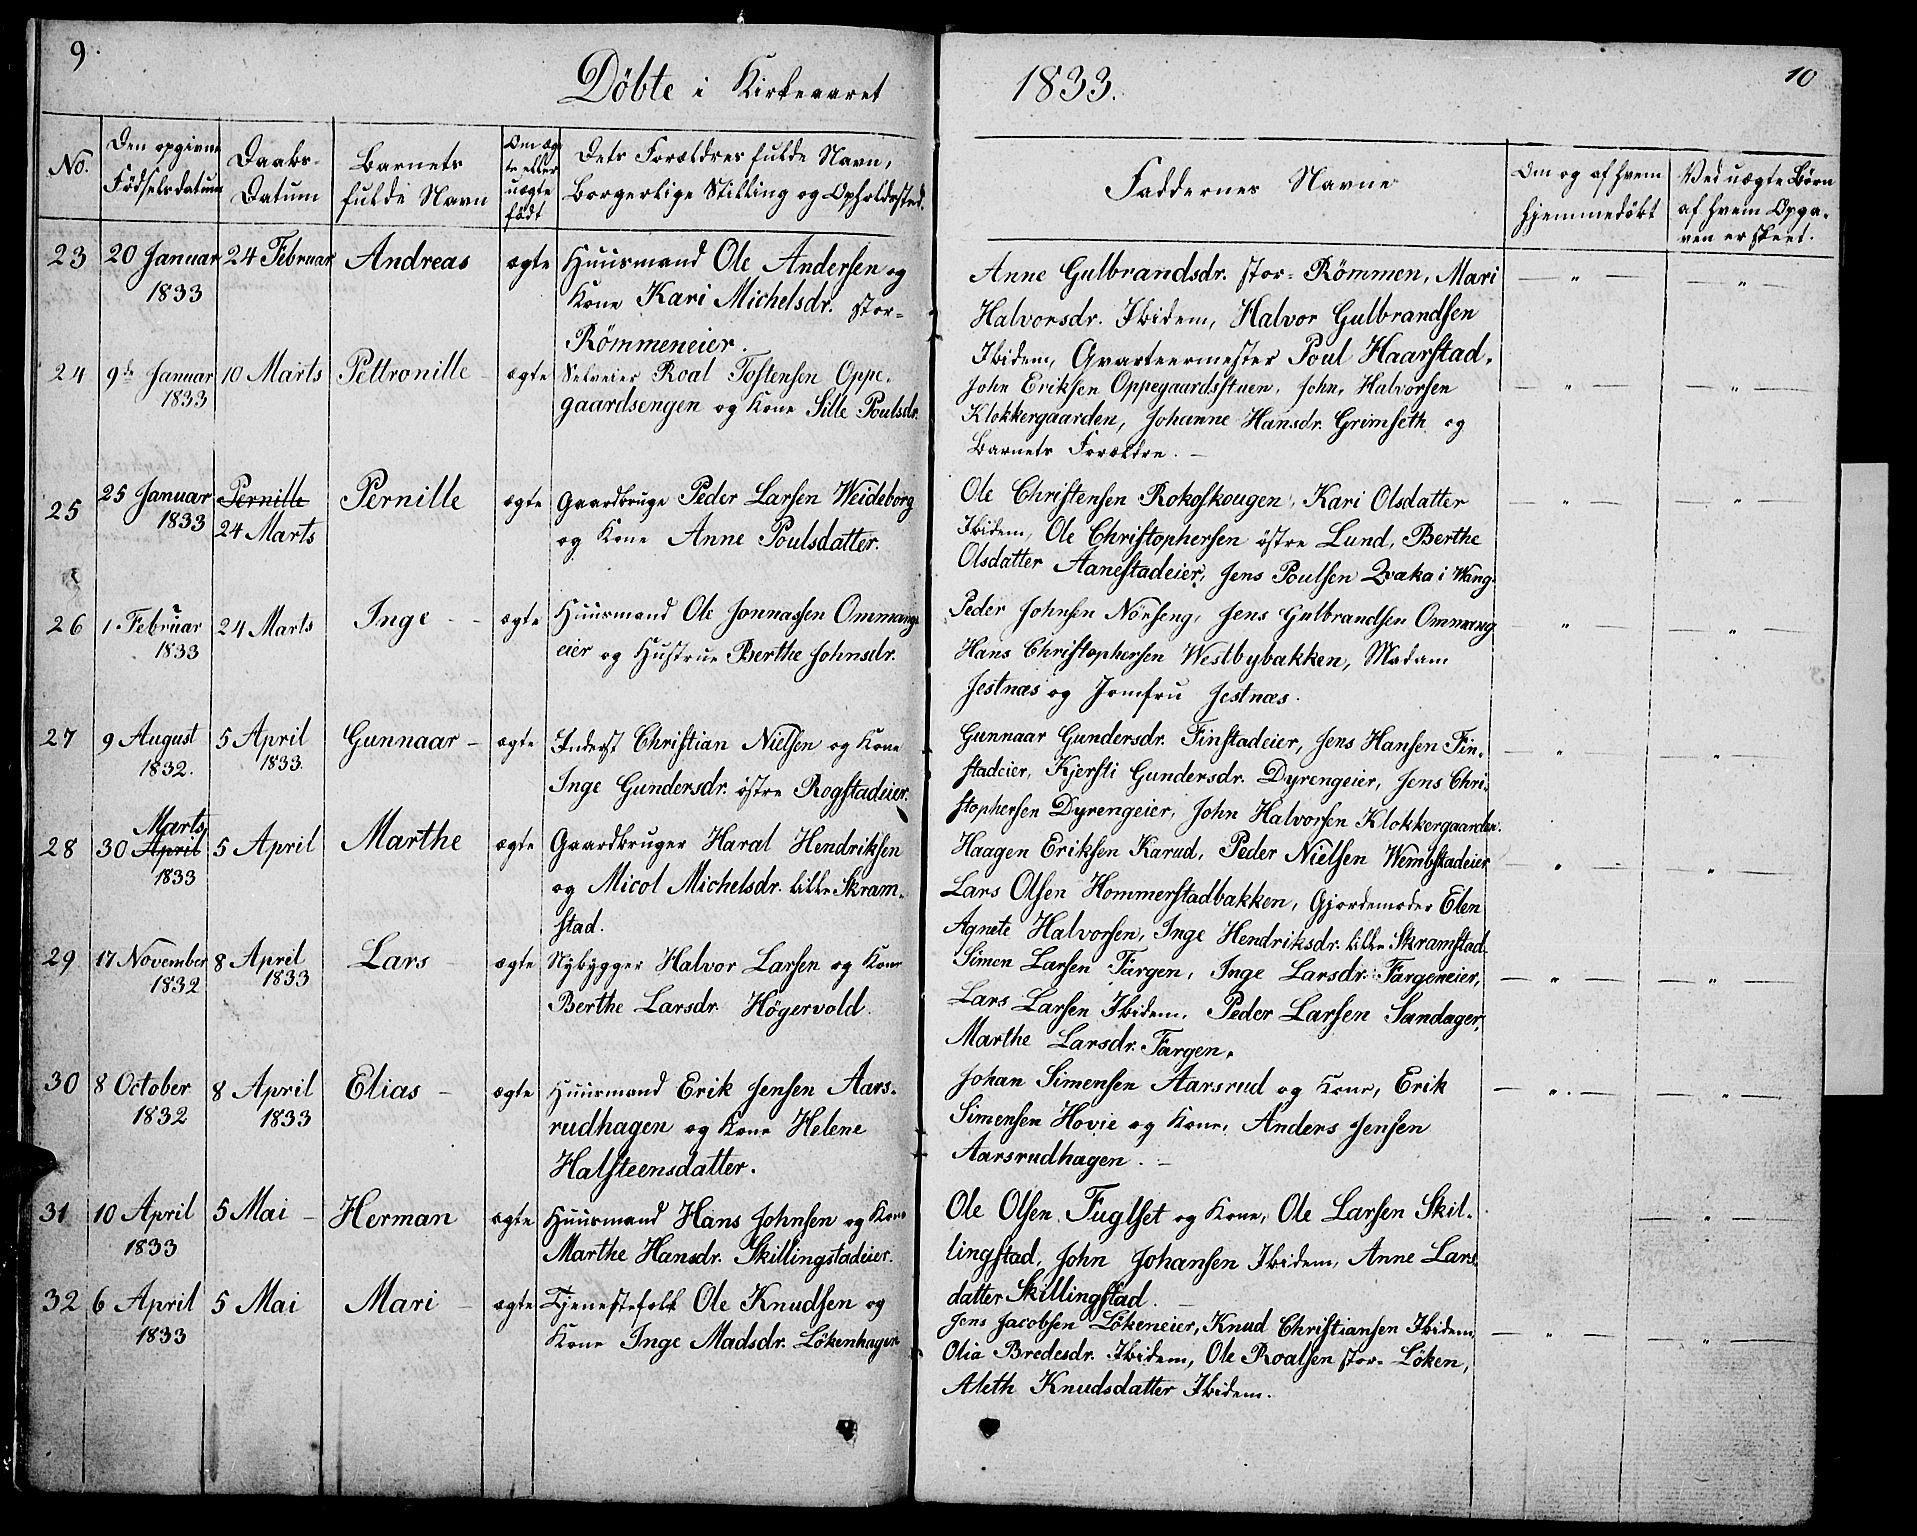 9.
Döbte i Kirkeaaret
1833.
10
No.
Den opgivne
Födselsdatum
Daabs-
Datum
Barnets
fulde Navn
Om æg
te eller
uægte
födt
Dets Forældres fulde Navn,
Borgerlige Stilling og Opholdssted.
Faddernes Navne
Om og af hvem
hjemmedöbt
Ved uægte Börn
af hvem Opga-
ven er skeet.
23 20 Januar 24 Februar Andreas ægte Huusmand Ole Andersen og
1833 Kone Kari Michelsdr. stor-
Römmeneier.
Anne Gulbrandsdr. stor- Römmen, Mari
Halvorsdr. Ibidem, Halvor Gulbrandsen
Ibidem, Qvarteermester Poul Haarstad.
24 9de Januar 10 Marts Pettronille - ægte Selveier Roal Tostensen Oppe-
1833 gaardsengen og Kone Sille Poulsdr.
John Eriksen Oppegaardsstuen, John Halvorsen
Klokkergaarden, Johanne Hansdr. Grimseth og
Barnets Forældre. -
25 25 Januar ~~Pernille~~ Pernille ægte Gaardbruge Peder Larsen Weideborg
1833 24 Marts og Kone Anne Poulsdatter.
Ole Christensen Rokoskougen, Kari Olsdatter
Ibidem, Ole Christophersen östre Lund, Berthe
Olsdatter Aanestadeier, Jens Poulsen Qvaka i Wang.
26 1 Februar 24 Marts Inge - - ægte Huusmand Ole Jonnassen Ommang-
1833 eier og Hustrue Berthe Johnsdr.
Peder Johnsen Nörseng, Jens Gulbrandsen Ommang
Hans Christophersen Westbybakken, Madam
Jestnæs og Jomfru Jestnæs.
27 9 August 5 April Gunnaar - ægte Inderst Christian Nielsen og Kone
1832. 1833. Inge Gundersdr. östre Rogstadeier.
Gunnaar Gundersdr. Finstadeier, Jens Hansen Fin-
stadeier, Kjersti Gundersdr. Dyrengeier, Jens Chri-
stophersen Dyrengeier, John Halvorsen Klokkergaarden.
Marts
28 30 ~~April~~ 5 April Marthe ægte Gaardbruger Haral Hendriksen
1833 og Micol Michelsdr. lille Skram-
stad.
Haagen Eriksen Karud, Peder Nielsen Wembstadeier
Lars Olsen Hommerstadbakken, Gjordemoder Elen
Agnete Halvorsen, Inge Hendriksdr. lille Skramstad.
29 17 November 8 April Lars - ægte Nybygger Halvor Larsen og Kone
1832 1833 Berthe Larsdr. Högervold.
Simen Larsen Fargen, Inge Larsdr. Fargeneier,
Lars Larsen Ibidem, Peder Larsen Sandager,
Marthe Larsdr. Fargen.
30 8 October 8 April Elias - ægte Huusmand Erik Jensen Aars-
1832 1833 rudhagen og Kone Helene
Halsteensdatter.
Johan Simensen Aarsrud og Kone, Erik
Simensen Hovie og Kone, Anders Jensen
Aarsrudhagen. -
31 10 April 5 Mai - Herman ægte Huusmand Hans Johnsen og Kone
1833 Marthe Hansdr. Skillingstadeier.
Ole Olsen Fuglset og Kone, Ole Larsen Skil-
lingstad, John Johansen Ibidem, Anne Lars-
datter Skillingstad. -
32 6 April 5 Mai Mari - ægte Tjenestefolk Ole Knudsen og
1833 Kone Inge Madsdr. Lökenhagen
Jens Jacobsen Lökeneier, Knud Christiansen Ibidem
Olia Bredesdr. Ibidem, Ole Roalsen stor- Löken,
Aleth Knudsdatter Ibidem.